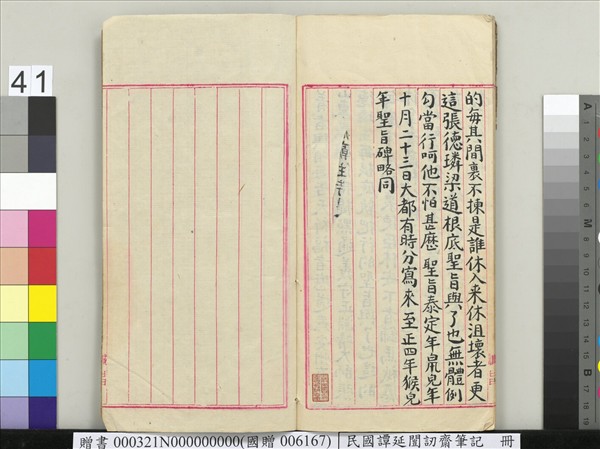 的每其間裏不揀是誰休入来休沮壞者更
這張德璘梁道根底聖旨與了也無體例
勾當行呵他不怕甚麽聖旨泰定年鼠兒年
十月二十三日大都有時分寫來至正四年猴兒
年聖旨碑略同
41
贈書 000321N000000000(國贈 006167) 民國譚延闓訒齋筆記 冊